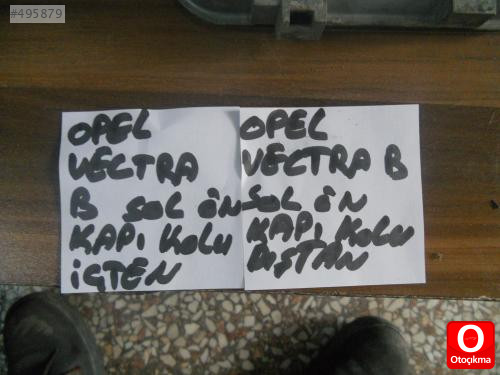 #495879
OPEL
VECTRA
B SOL ÖN
KAPI KOLU
İÇTEN
OPEL
VECTRA B
SOL ÖN
KAPI KOLU
DIŞTAN
Otoçıkma